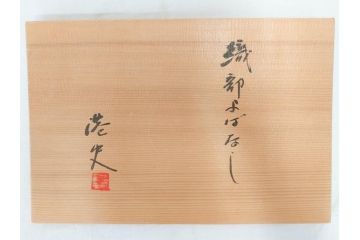 織部よばなし
港史